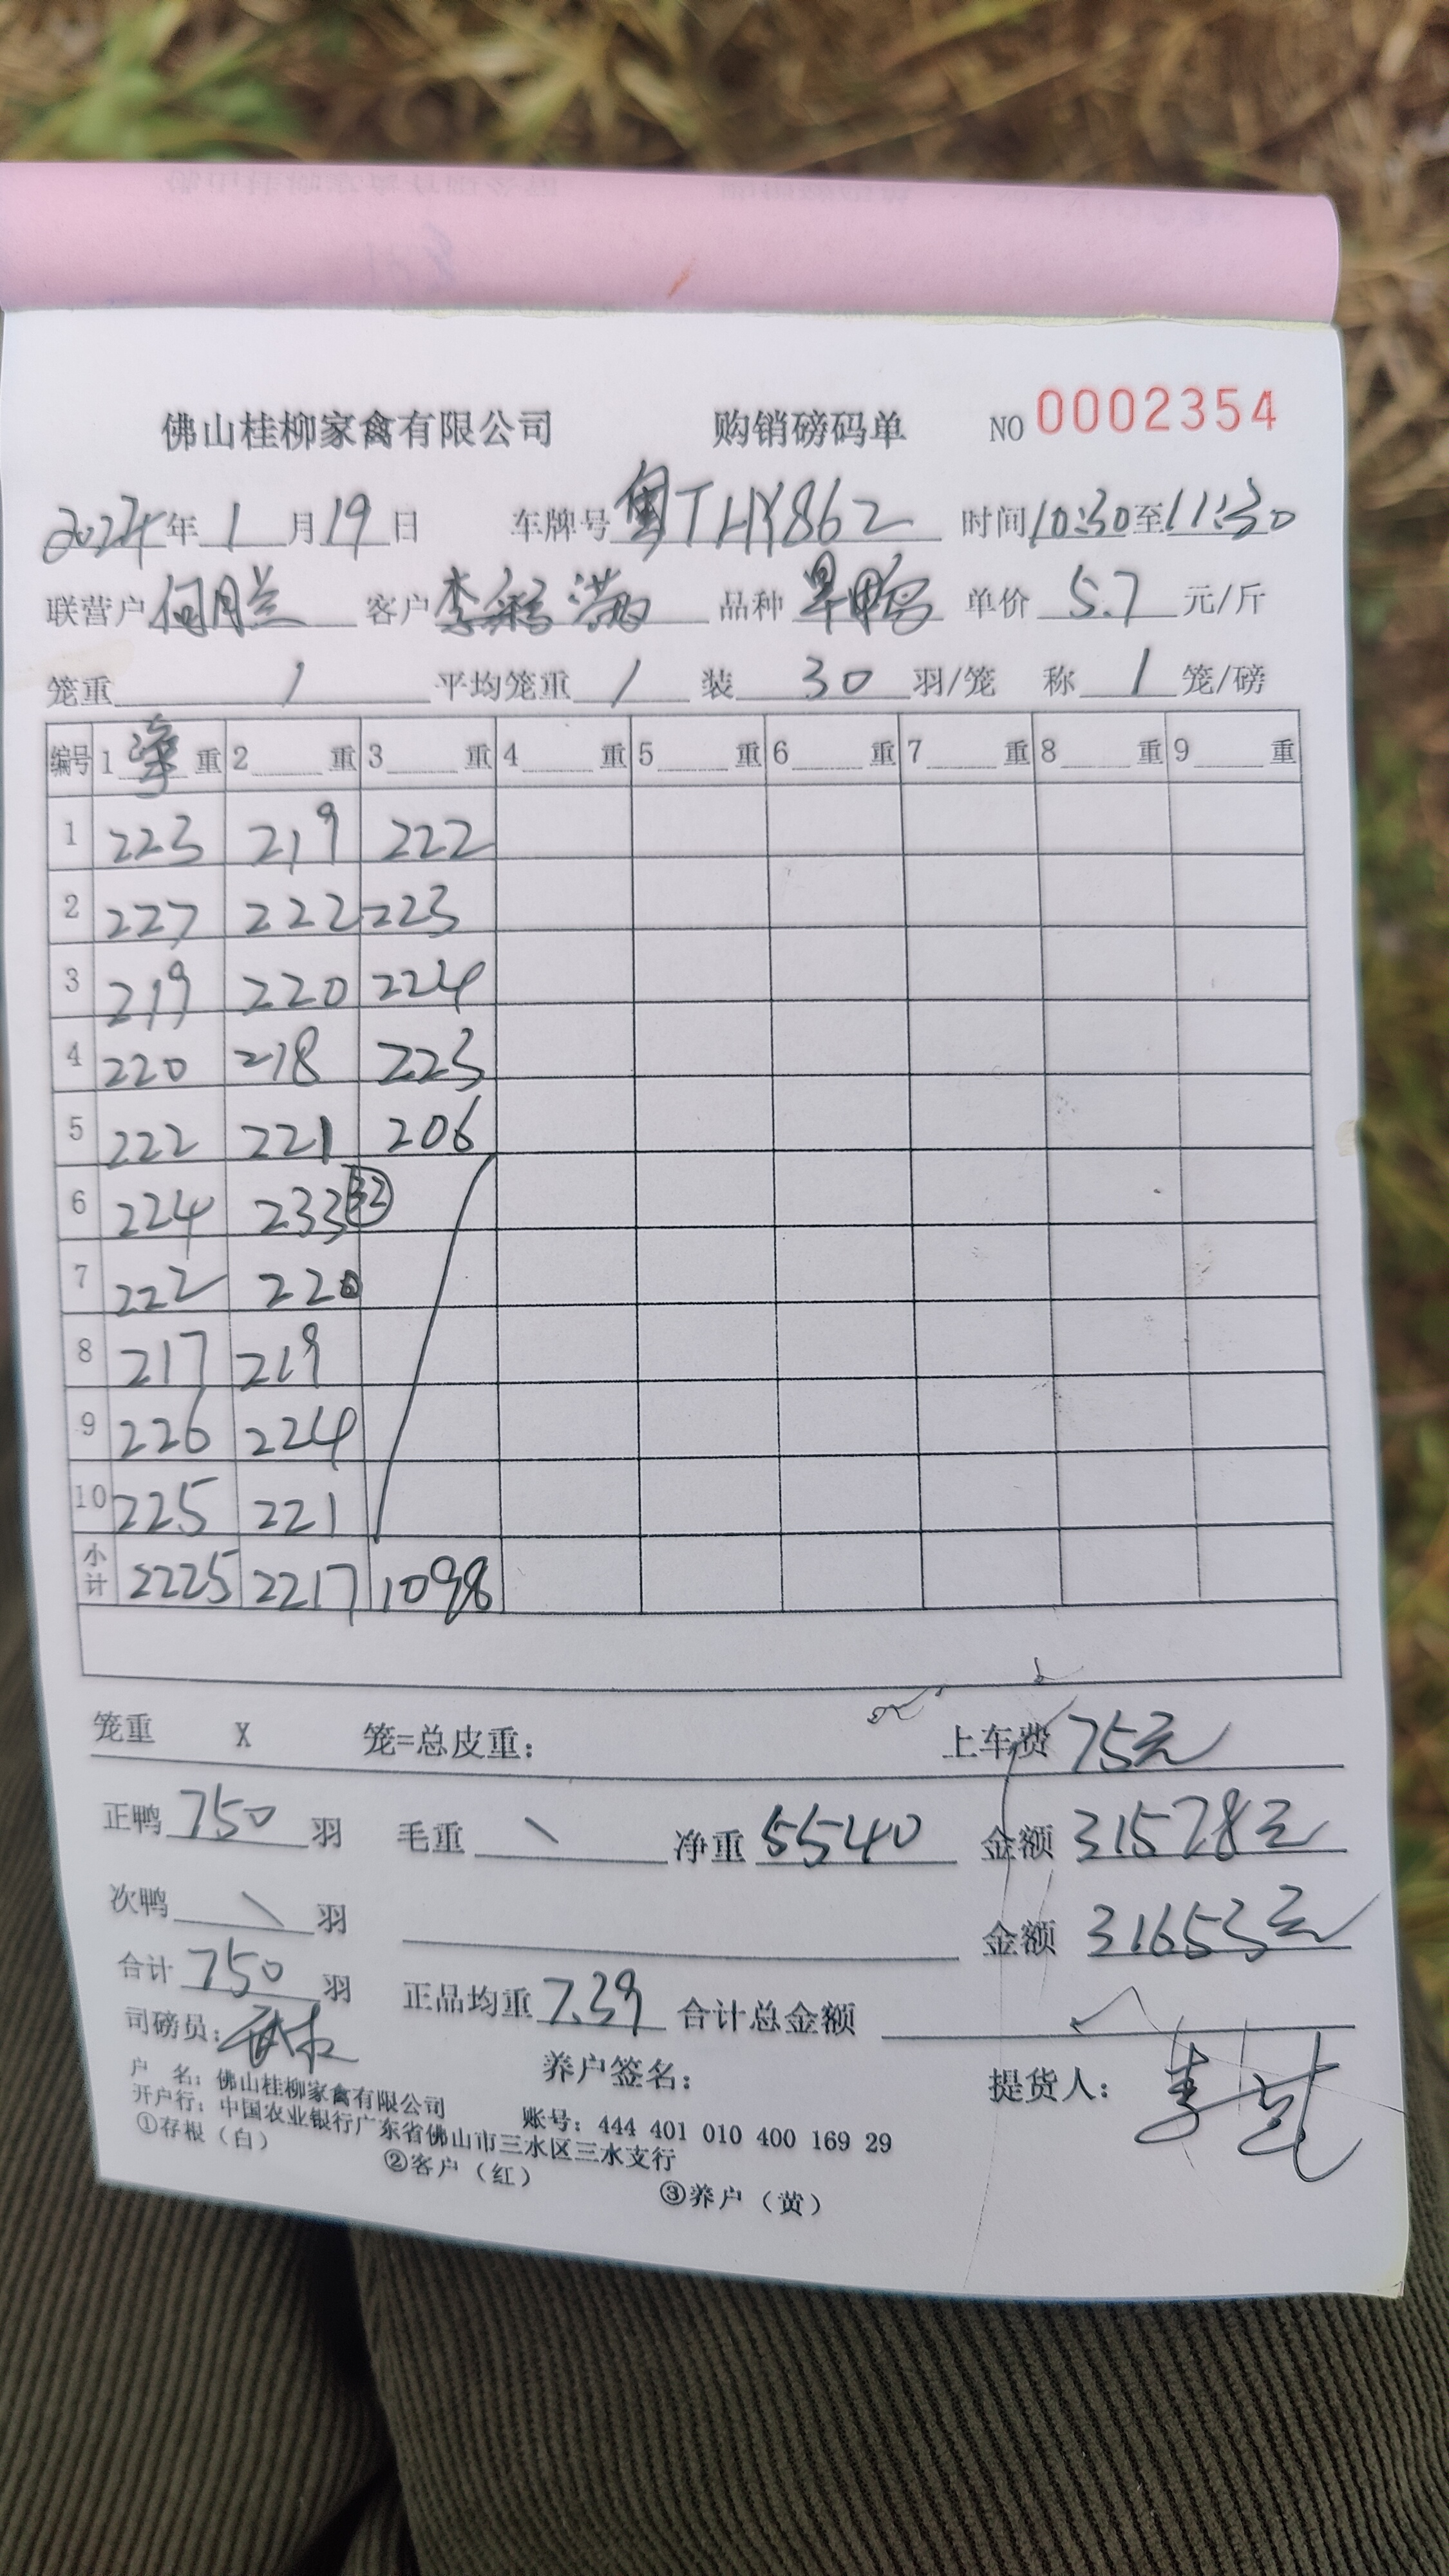 佛山桂柳家禽有限公司 购销磅码单 NO 0002354
2024年1月19日 车牌号粤THY862 时间10:30至11:30
联营户何月兰 客户李彩满 品种旱鸭 单价5.7元/斤
笼重 / 平均笼重 / 装 30 羽/笼 称 1 笼/磅
编号 1 净 重 2 重 3 重 4 重 5 重 6 重 7 重 8 重 9 重
1 223 219 222
2 227 222 223
3 219 220 224
4 220 218 223
5 222 221 206
6 224 233 32
7 222 220
8 217 219
9 226 224
10 225 221
小计 2225 2217 1098
笼重 X 笼=总皮重: 上车费 75元
正鸭 750 羽 毛重 \ 净重 5540 金额 31578元
次鸭 \ 羽 金额 31653元
合计 750 羽 正品均重 7.39 合计总金额
司磅员: 养户签名: 提货人: 李
户 名: 佛山桂柳家禽有限公司 账号: 444 401 010 400 169 29
开户行: 中国农业银行广东省佛山市三水区三水支行
①存根（白） ②客户（红） ③养户（黄）